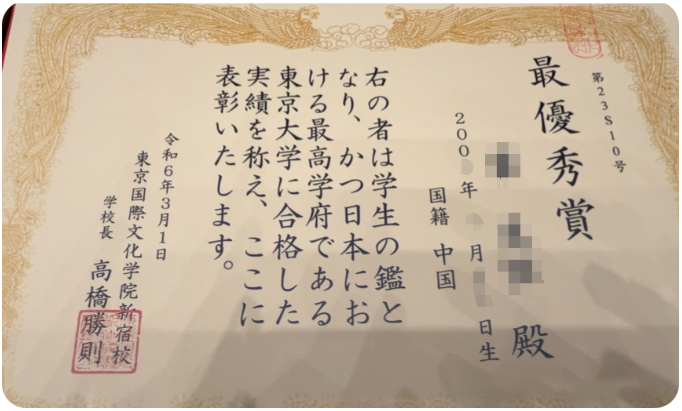 第23S10号
最優秀賞
殿
200 年 月 日生
国籍 中国
右の者は学生の鑑と
なり、かつ日本にお
ける最高学府である
東京大学に合格した
実績を称え、ここに
表彰いたします。
令和6年3月1日
東京国際文化学院新宿校
学校長 高橋勝則